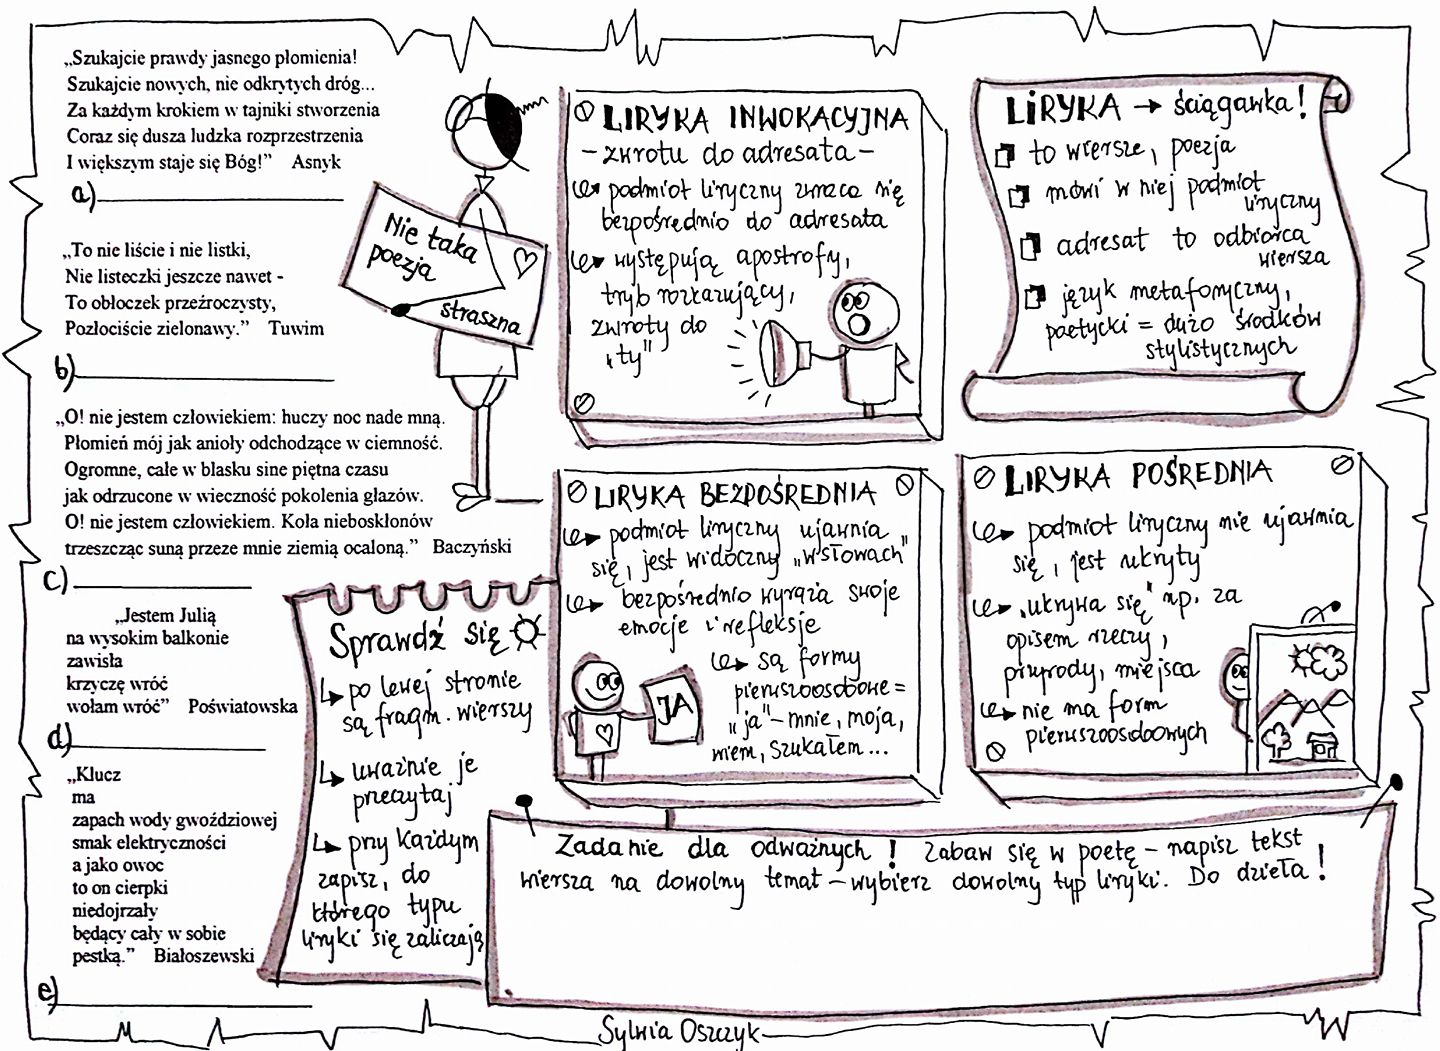 „Szukajcie prawdy jasnego płomienia!
Szukajcie nowych, nie odkrytych dróg...
Za każdym krokiem w tajniki stworzenia
Coraz się dusza ludzka rozprzestrzenia
I większym staje się Bóg!” Asnyk
a)
„To nie liście i nie listki,
Nie listeczki jeszcze nawet -
To obłoczek przeźroczysty,
Pozłociście zielonawy.” Tuwim
b)
„O! nie jestem człowiekiem: huczy noc nade mną.
Płomień mój jak anioły odchodzące w ciemność.
Ogromne, całe w blasku sine piętna czasu
jak odrzucone w wieczność pokolenia głazów.
O! nie jestem człowiekiem. Koła nieboskłonów
trzeszcząc suną przeze mnie ziemią ocaloną.” Baczyński
c)
„Jestem Julią
na wysokim balkonie
zawisła
krzyczę wróć
wołam wróć” Poświatowska
d)
„Klucz
ma
zapach wody gwoździowej
smak elektryczności
a jako owoc
to on cierpki
niedojrzały
będący cały w sobie
pestką.” Białoszewski
e)
Nie taka
poezja
straszna
LIRYKA INWOKACYJNA
- zwrotu do adresata -
podmiot liryczny zwraca się
bezpośrednio do adresata
występują apostrofy,
tryb rozkazujący,
zwroty do
„ty"
LIRYKA → ściągawka!
to wiersze, poezja
mówi w niej podmiot
liryczny
adresat to odbiorca
wiersza
język metaforyczny,
poetycki = dużo środków
stylistycznych
LIRYKA BEZPOŚREDNIA
podmiot liryczny ujawnia
się, jest widoczny „w słowach"
bezpośrednio wyraża swoje
emocje i refleksje
są formy
pierwszoosobowe =
„ja" - mnie, moja,
wiem, szukałem...
JA
LIRYKA POŚREDNIA
podmiot liryczny nie ujawnia
się, jest ukryty
„ukrywa się" np. za
opisem rzeczy,
przyrody, miejsca
nie ma form
pierwszoosobowych
Sprawdź się
po lewej stronie
są fragm. wierszy
uważnie je
przeczytaj
przy każdym
zapisz, do
którego typu
liryki się zaliczają
Zadanie dla odważnych! Zabaw się w poetę - napisz tekst
wiersza na dowolny temat - wybierz dowolny typ liryki. Do dzieła!
Sylwia Oszczyk